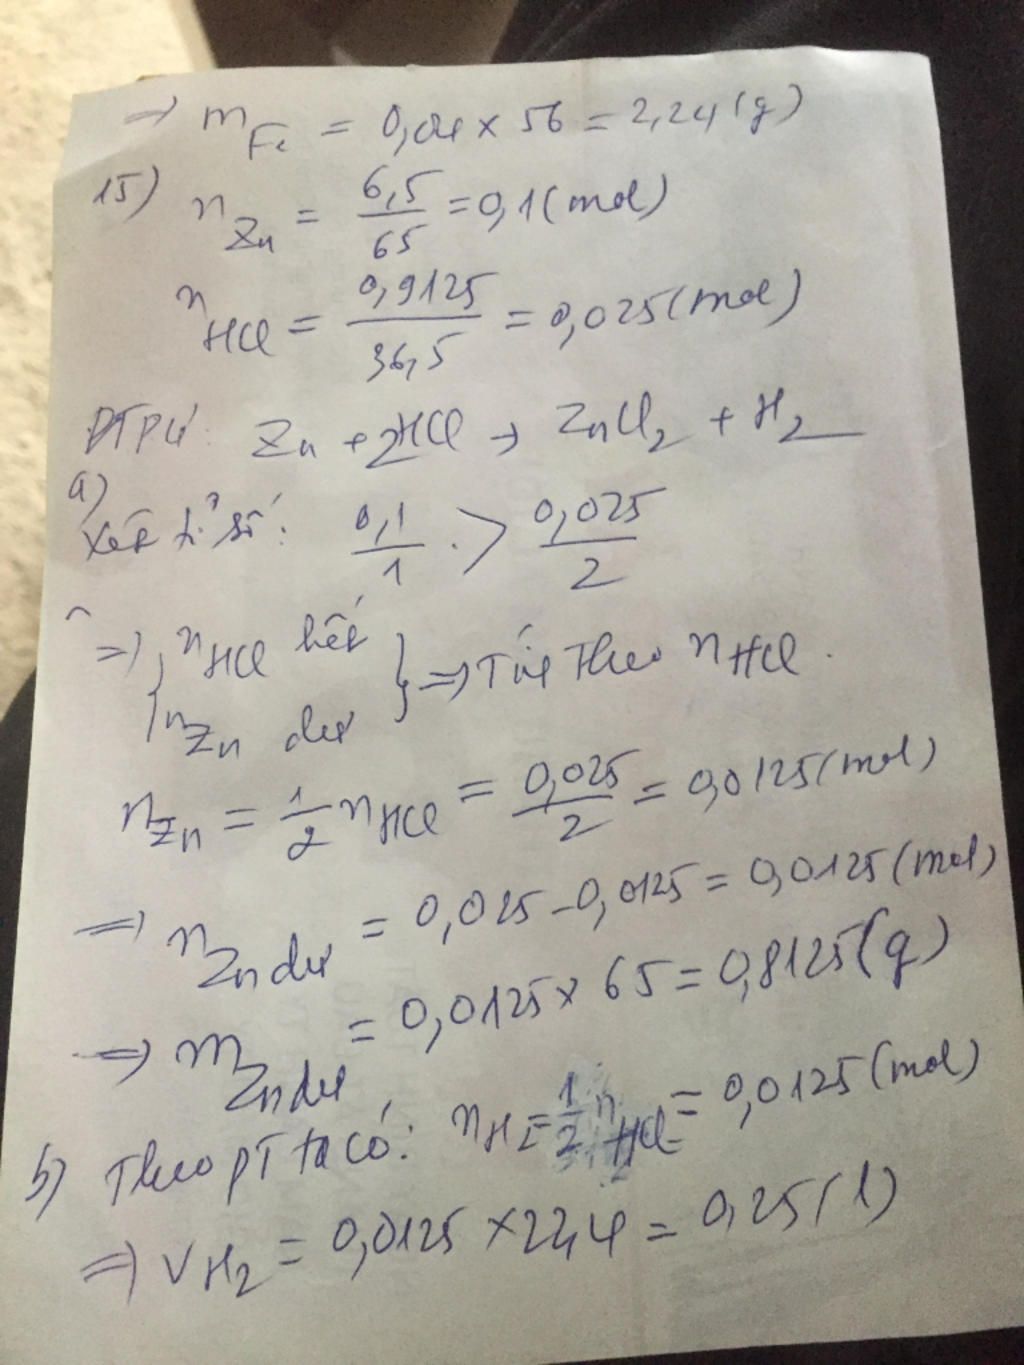 => m Fe = 0,04 x 56 = 2,24 (g)
15) n Zn = 6,5/65 = 0,1 (mol)
n HCl = 0,9125/36,5 = 0,025 (mol)
PTPƯ: Zn + 2HCl → ZnCl2 + H2
a)
Xét tỉ số: 0,1/1 > 0,025/2
=> { n HCl hết
n Zn dư } => Tính theo n HCl.
n Zn = 1/2 n HCl = 0,025/2 = 0,0125 (mol)
=> n Zn dư = 0,025 - 0,0125 = 0,0125 (mol)
=> m Zn dư = 0,0125 x 65 = 0,8125 (g)
b) Theo pT ta có: n H2 = 1/2 n HCl = 0,0125 (mol)
=> V H2 = 0,0125 x 22,4 = 0,25 (l)